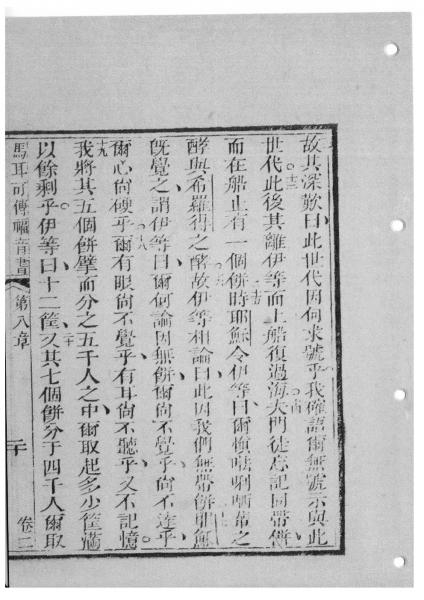 故其深歎曰此世代因何求號乎我確語爾無號示與此
世代此後其離伊等而上船復過海去門徒忘記因帶餅
而在船止有一個餅時耶穌令伊等曰爾慎嘻唎哂輩之
酵與希羅得之酵故伊等相論曰此因我們無帶餅耶穌
既覺之謂伊等曰爾何論因無餅爾尚不覺乎尚不達乎
爾心尚硬乎爾有眼尚不覺乎有耳尚不聽乎又不記憶
十九
我將其五個餅擘而分之五千人之中爾取起多少筐滿
以餘剩乎伊等曰十二筐又其七個餅分于四千人爾取
馬耳可傳福音書 第八章 二十 卷二